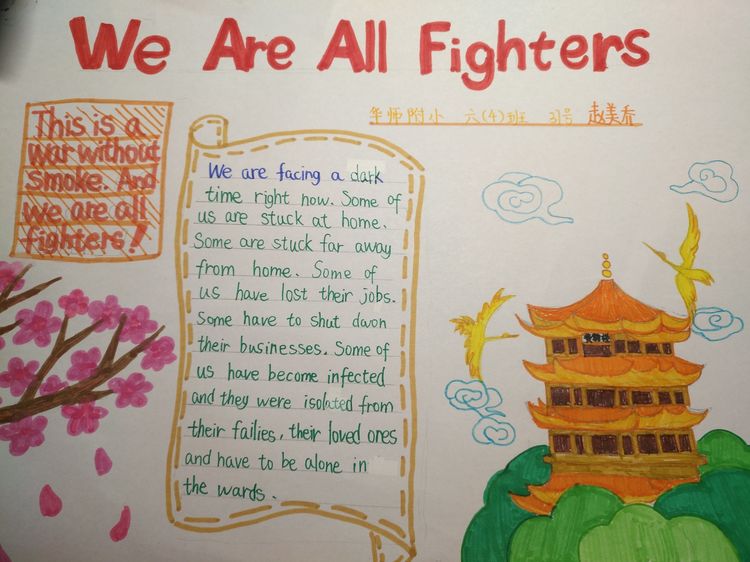 We Are All Fighters
华师附小 六(4)班 31号 赵美乔
This is a
war without
smoke. And
we are all
fighters!
We are facing a dark
time right now. Some of
us are stuck at home.
Some are stuck far away
from home. Some of
us have lost their jobs.
Some have to shut dawn
their businesses. Some of
us have become infected
and they were isolated from
their failies, their loved ones
and have to be alone in
the wards.
黄鹤楼